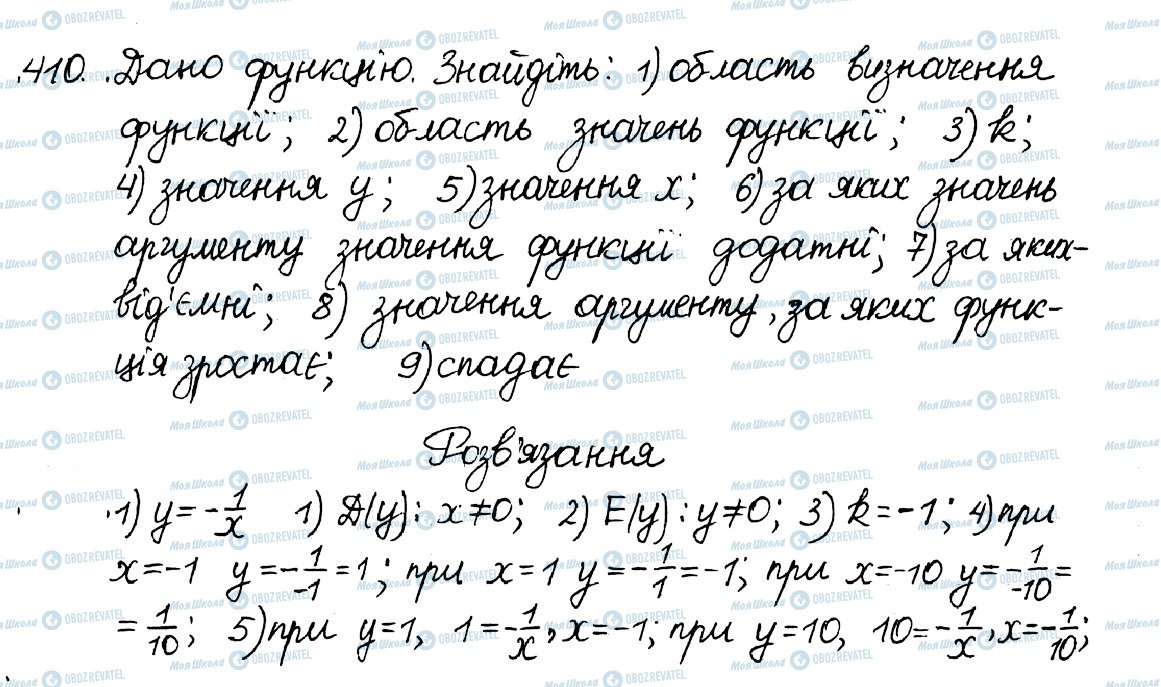 410. Дано функцію. Знайдіть: 1) область визначення
функції; 2) область значень функції; 3) k;
4) значення y; 5) значення x; 6) за яких значень
аргументу значення функції додатні; 7) за яких-
від'ємні; 8) значення аргументу, за яких функ-
ція зростає; 9) спадає
Розв'язання
1) y = -1/x 1) D(y): x≠0; 2) E(y): y≠0; 3) k = -1; 4) при
x = -1 y = -1/-1 = 1; при x = 1 y = -1/1 = -1; при x = -10 y = -1/-10 =
= 1/10; 5) при y = 1, 1 = -1/x, x = -1; при y = 10, 10 = -1/x, x = -1/10;
Моя Школа OBOZREVATEL